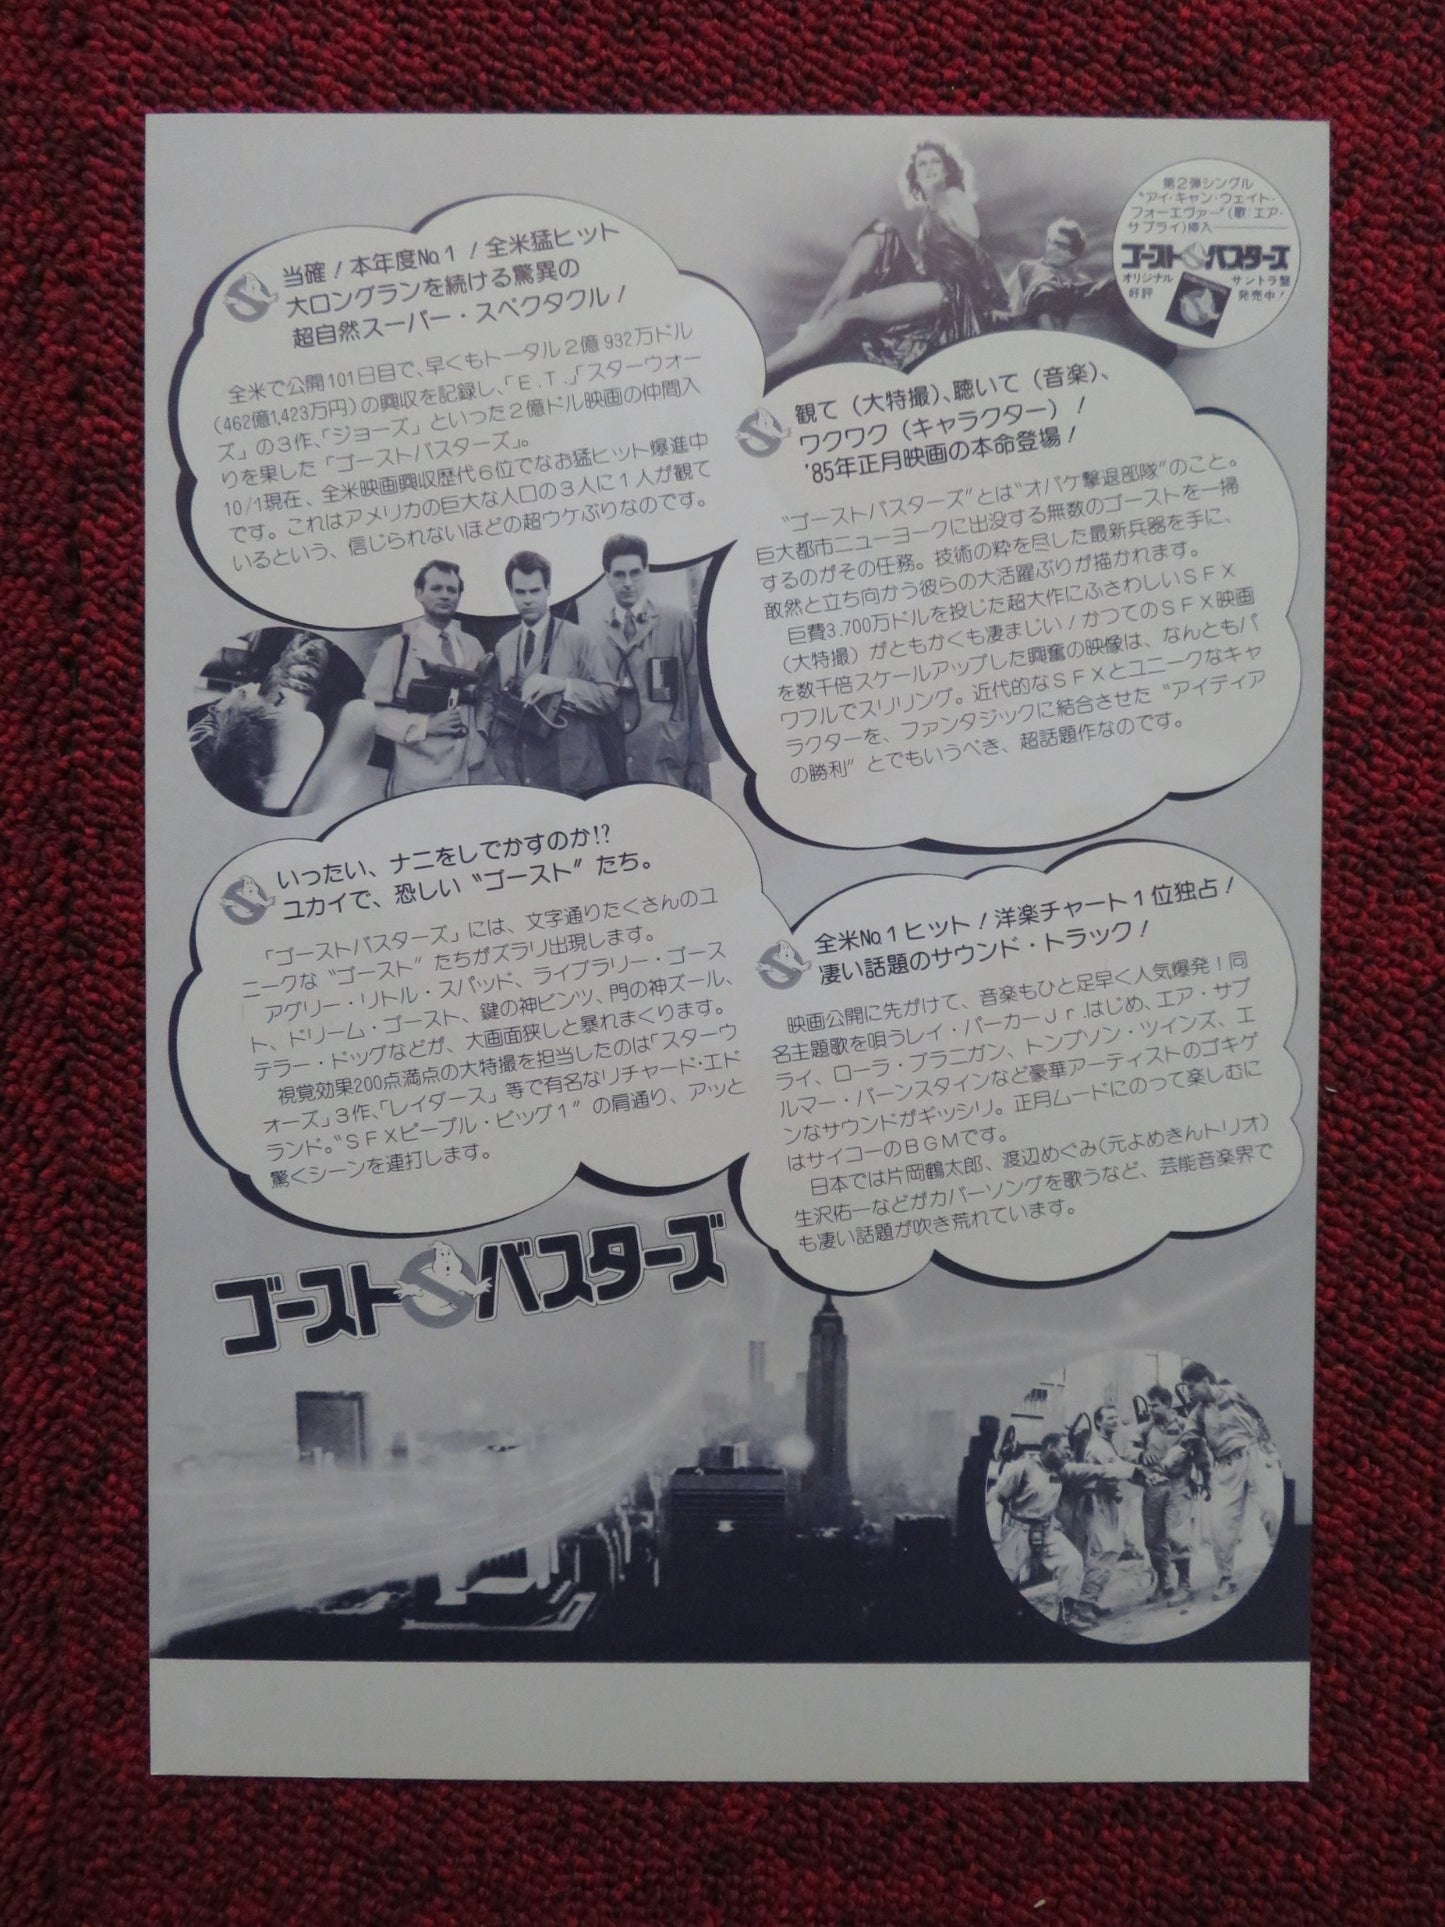 当確！本年度No.1！全米猛ヒット
大ロングランを続ける驚異の
超自然スーパー・スペクタクル！
全米で公開101日目で、早くもトータル2億932万ドル
(462億1,423万円)の興収を記録し、「E.T.」「スターウォー
ズ」の3作、「ジョーズ」といった2億ドル映画の仲間入
りを果した「ゴーストバスターズ」。
10/1現在、全米映画興収歴代6位でなお猛ヒット爆進中
です。これはアメリカの巨大な人口の3人に1人が観て
いるという、信じられないほどの超ウケぶりなのです。
第2弾シングル
“アイ・キャン・ウェイト・
フォーエヴァー”(歌：エア・
サプライ)挿入
ゴーストバスターズ
オリジナル サントラ盤
好評 発売中！
観て（大特撮）、聴いて（音楽）、
ワクワク（キャラクター）！
'85年正月映画の本命登場！
“ゴーストバスターズ”とは“オバケ撃退部隊”のこと。
巨大都市ニューヨークに出没する無数のゴーストを一掃
するのがその任務。技術の粋を尽した最新兵器を手に、
敢然と立ち向かう彼らの大活躍ぶりが描かれます。
巨費3.700万ドルを投じた超大作にふさわしいSFX
（大特撮）がともかくも凄まじい！かつてのSFX映画
を数千倍スケールアップした興奮の映像は、なんともパ
ワフルでスリリング。近代的なSFXとユニークなキャ
ラクターを、ファンタジックに結合させた“アイディア
の勝利”とでもいうべき、超話題作なのです。
いったい、ナニをしでかすのか!?
ユカイで、恐しい“ゴースト”たち。
「ゴーストバスターズ」には、文字通りたくさんのユ
ニークな“ゴースト”たちがズラリ出現します。
アグリー・リトル・スパッド、ライブラリー・ゴース
ト、ドリーム・ゴースト、鍵の神ビンツ、門の神ズール、
テラー・ドッグなどが、大画面狭しと暴れまくります。
視覚効果200点満点の大特撮を担当したのは「スターウ
ォーズ」3作、「レイダース」等で有名なリチャード・エド
ランド。“SFXピープル・ビッグ1”の肩通り、アッと
驚くシーンを連打します。
全米No.1ヒット！洋楽チャート1位独占！
凄い話題のサウンド・トラック！
映画公開に先がけて、音楽もひと足早く人気爆発！同
名主題歌を唄うレイ・パーカーJr.はじめ、エア・サプ
ライ、ローラ・ブラニガン、トンプソン・ツインズ、エ
ルマー・バーンスタインなど豪華アーティストのゴキゲ
ンなサウンドがギッシリ。正月ムードにのって楽しむに
はサイコーのBGMです。
日本では片岡鶴太郎、渡辺めぐみ(元よめきんトリオ)
生沢佑一などがカバーソングを歌うなど、芸能音楽界で
も凄い話題が吹き荒れています。
ゴーストバスターズ